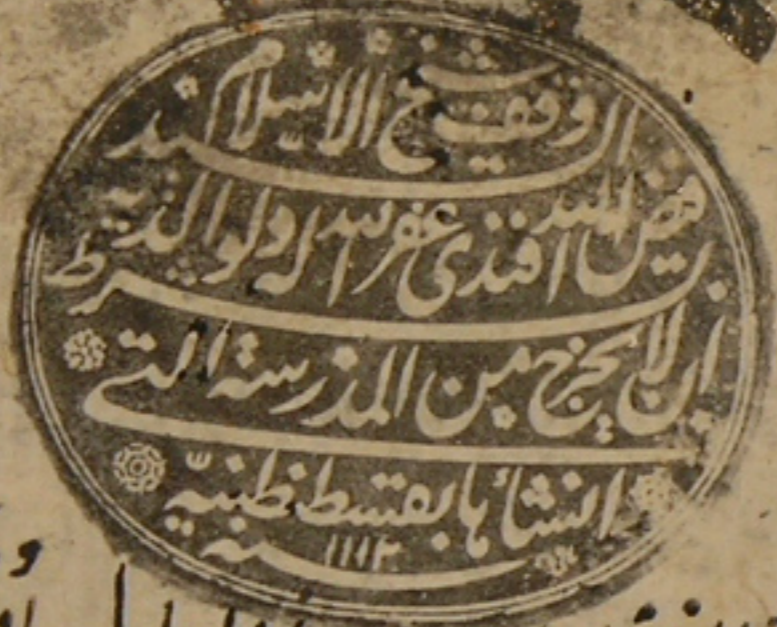 وقف شيخ الاسلام السيد
فيض الله افندى غفر الله له ولوالديه بشرط
ان لا يخرج من المدرسة التي
انشأها بقسطنطنيّة
سنة ١١١٢